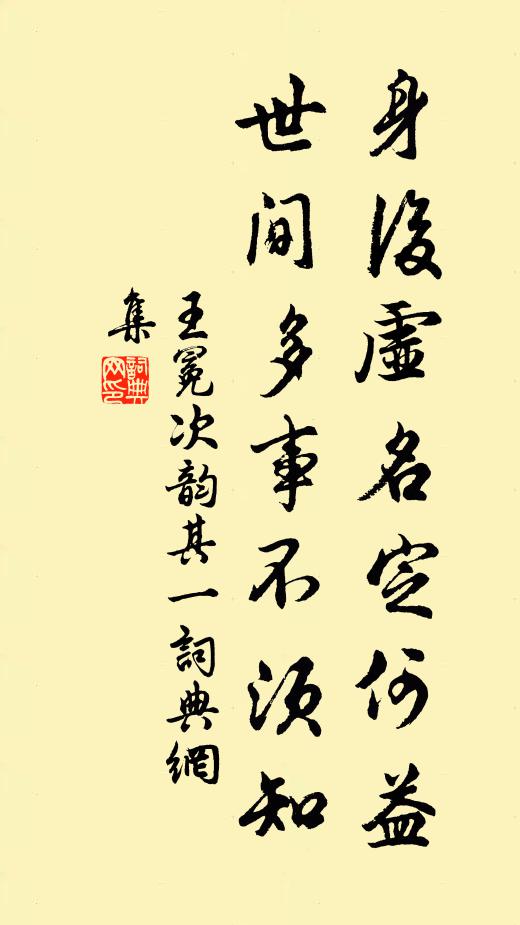 身後虛名定何益
世间多事不須知
王冕次韵其一詞典網
集
詞典
网印